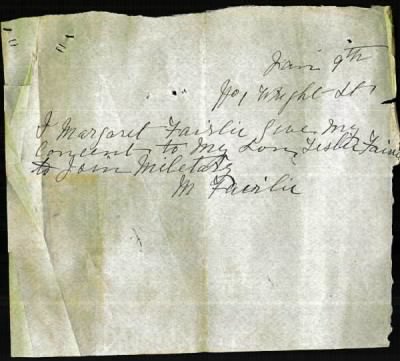 Jan 9th
Wright St
I Margaret Fairlie give my
Concent to My Son Lester Fairlie
to Join Miletary
M Fairlie